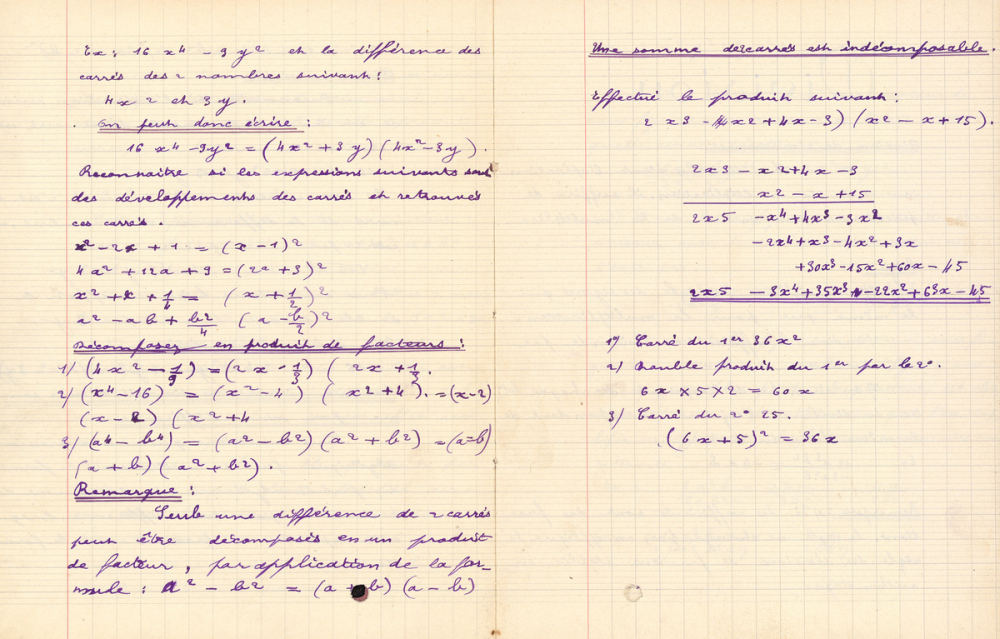 Ex: 16 x⁴ - 9 y² et la différence des
carrés des 2 nombres suivant:
4x 2 et 3 y.
On peut donc écrire :
16 x⁴ - 9y² = (4x² + 3 y) (4x² - 3y).
Reconnaitre si les expressions suivants sont
des développements des carrés et retrouvés
ces carrés.
x² - 2x + 1 = (x - 1)²
4 a² + 12a + 9 = (2a + 3)²
x² + x + 1/4 = (x + 1/2)²
a² - ab + b²/4 (a - b/2)²
Décomposez en produit de facteurs :
1/ (4x² - 1/9) = (2x - 1/3) ( 2x + 1/3.
2/ (x⁴ - 16) = (x² - 4) ( x² + 4). = (x - 2)
(x - 2) (x² + 4
3/ (a⁴ - b⁴) = (a² - b²) (a² + b²) = (a = b)
(a + b) (a² + b²).
Remarque :
Seule une différence de 2 carrés
peut être décomposés en un produit
de facteur, par application de la for-
mule : a² - b² = (a + b) (a - b)
Une somme de 2 carrés est indécomposable.
Effectué le produit suivant :
2 x3 - 4x2 + 4x - 3) (x2 - x + 15).
2x3 - x2 + 4x - 3
x2 - x + 15
2x5 - x⁴ + 4x³ - 3x²
- 2x⁴ + x³ - 4x² + 3x
+ 30x³ - 15x² + 60x - 45
2x5 - 3x⁴ + 35x³ - 22x² + 63x - 45
1) Carré du 1er 36x²
2) Double produit du 1er par le 2°.
6x X 5 X 2 = 60x
3) Carré du 2° 25.
(6x + 5)² = 36x